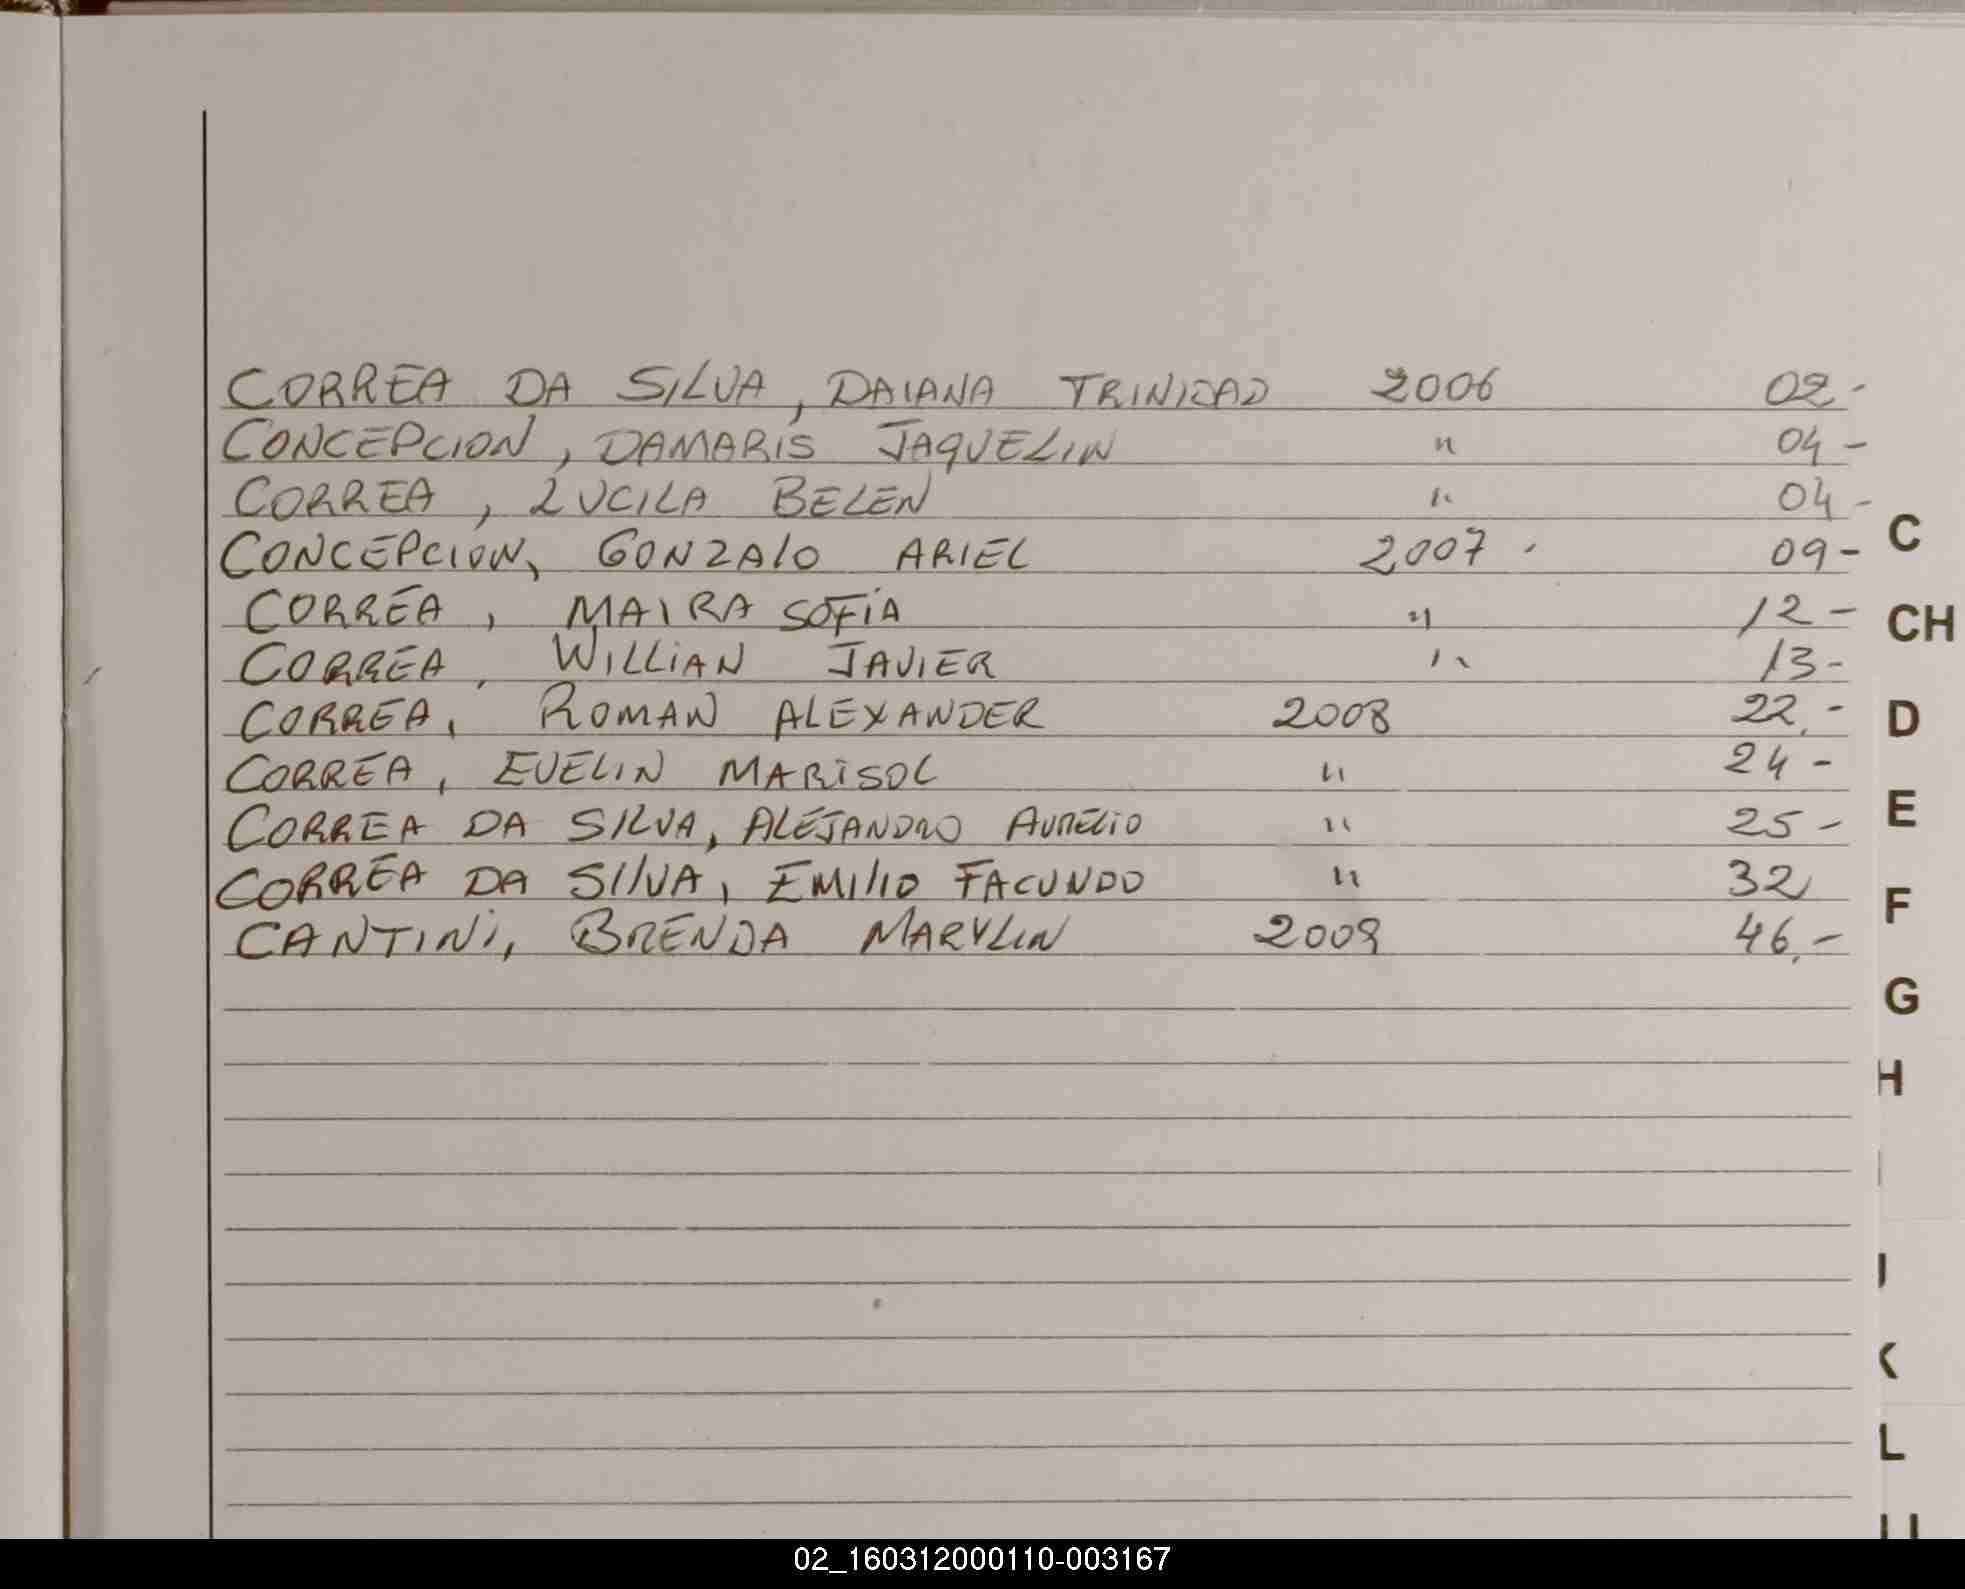 CORREA DA SILVA, DAIANA TRINIDAD 2006 02-
CONCEPCION, DAMARIS JAQUELIN " 04-
CORREA, LUCILA BELEN " 04-
CONCEPCION, GONZALO ARIEL 2007 - 09-
CORREA, MAIRA SOFIA " 12-
CORREA, WILLIAN JAVIER " 13-
CORREA, ROMAN ALEXANDER 2008 22.-
CORREA, EVELIN MARISOL " 24-
CORREA DA SILVA, ALEJANDRO AURELIO " 25-
CORREA DA SILVA, EMILIO FACUNDO " 32
CANTINI, BRENDA MARYLIN 2009 46.-
C
CH
D
E
F
G
H
I
J
K
L
02_160312000110-003167